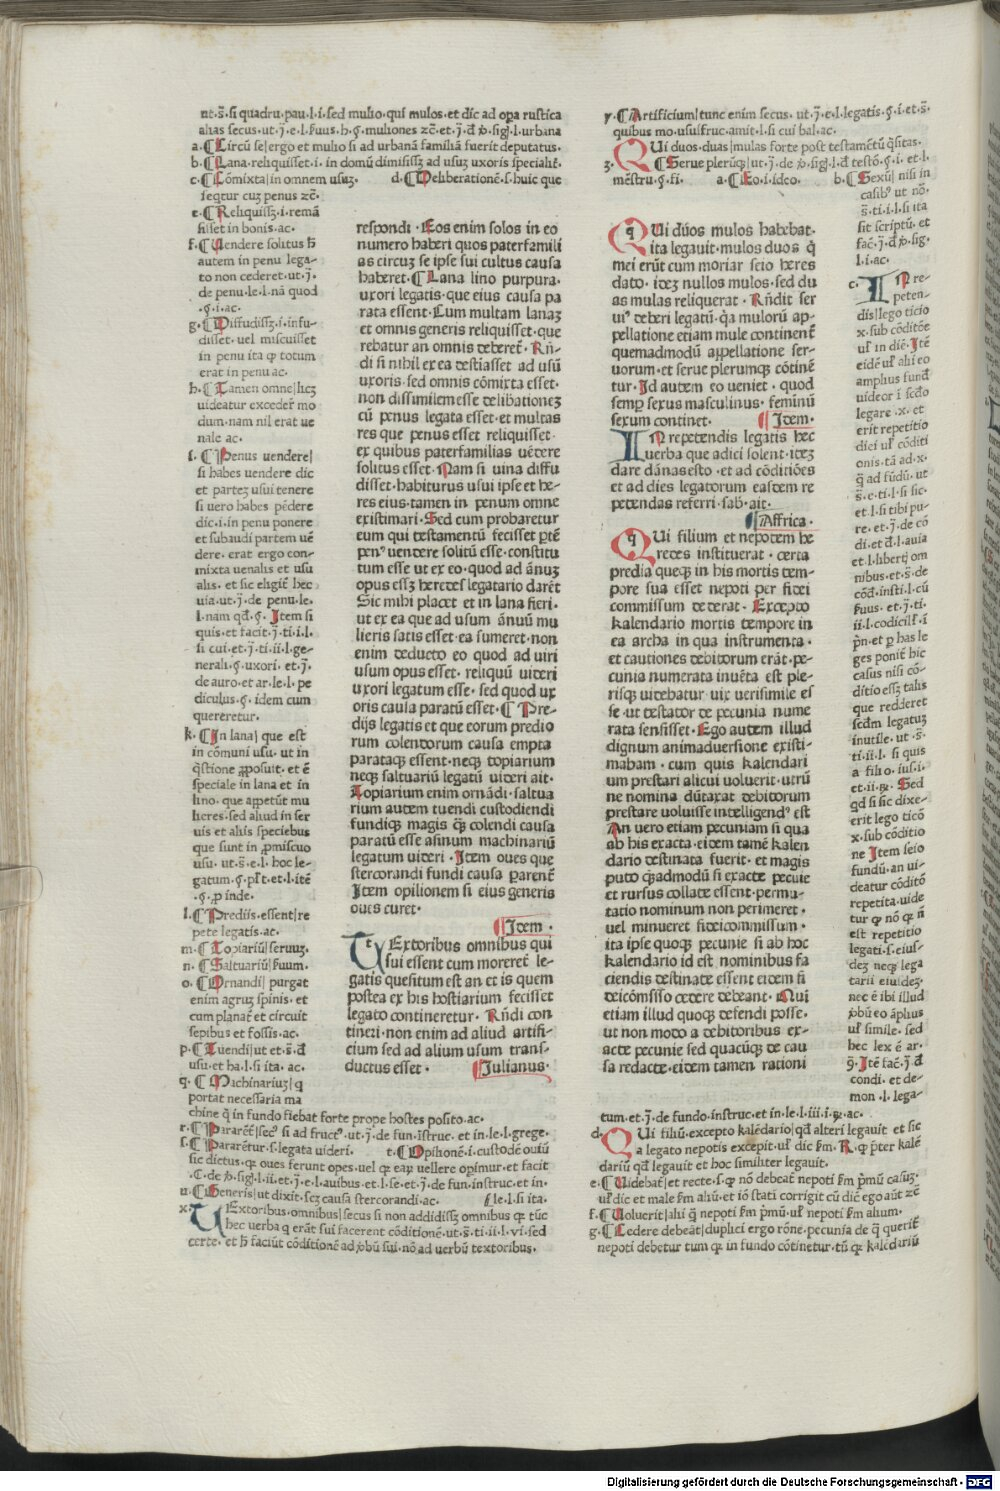 ut.s̄. si quadru. pau. l. i. sed mulio. qui mulos. et dic ad opa rustica
alias secus. ut.j̄. e. l. ẜuus. h. §. muliones zc̄. et.j̄. đ ꝟb. sigͥ. l. urbana
a. ¶ Circū se| ergo et mulio si ad urbanā familiā fuerit deputatus.
b. ¶ Lana. reliquisset. i. in domū dimisisꝫ ad usuꝫ uxoris specialit̄.
c. ¶ Cōmixta| in omnem usuꝫ. d. ¶ Deliberationē. s. huic que
seqtur cuꝫ penus zc̄.
e. ¶ Reliquissꝫ. i. remā
sisset in bonis. ac.
f. ¶ Uendere solitus ħ
autem in penu lega-
to non cederet. ut.j̄.
de penu. le. l. nā quod
. §. i. ac.
g. ¶ Diffudissꝫ. i. infu-
disset. uel miscuisset
in penu ita ꝙ totum
erat in penu ac.
h. ¶ Tamen omne| licꝫ
uideatur exceder̄ mo
dum. nam nil erat ue
nale ac.
i. ¶ Penus uendere|
si habes uendere dic
et parteꝫ usui tenere
si uero habes pēdere
dic. i. in penu ponere
et subaudi partem uē
dere. erat ergo con-
mixta uenalis et usu
alis. et sic eligit̄ hec
uia. ut.j̄. de penu. le.
l. nam qđ. §. Item si
quis. et facit.j̄. ti. i. l.
si cui. et.j̄. ti. ii. l. ge-
nerali. §. uxori. et.j̄.
de auro. et ar. le. l. pe
diculus. §. idem cum
quereretur.
k. ¶ In lana| que est
in cōmuni usu. ut in
q̄stione ꝓposuit. et ē
speciale in lana et in
lino. que appetūt mu
lieres. sed aliud in ser
uis et aliis speciebus
que sunt in ꝓmiscuo
usu. ut.s̄. e. l. hoc le-
gatum. §. pr̄t. et. l. itē
. §. ꝓ inde.
l. ¶ Prediis. essent| re
pete legatis. ac.
m. ¶ Topiariū| seruuꝫ.
n. ¶ Saltuariū| ẜuum.
o. ¶ Ornandi| purgat
enim agruꝫ spinis. et
cum planat̄ et circuit
sepibus et fossis. ac.
p. ¶ Tuendi| ut et.s̄. đ
usu. et ha. l. si ita. ac.
q. ¶ Machinariuꝫ| q
portat necessaria ma
chine q̄ in fundo fiebat forte prope hostes posito. ac.
r. ¶ Pararēt| secꝰ si ad fructꝰ. ut.j̄. de fun. īstruc. et in. le. l. grege.
s. ¶ Pararētur. s. legata uideri. t. ¶ Opilionē. i. custodē ouiū
sic dictus. ꝙ oues ferunt opes. uel ꝙ eaꝝ uellere opimur. et facit
. C. de ꝟb. sigͥ. l. ii. et.j̄. e. l. auibus. et. l. se. et.j̄. de fun. instruc. et in
u. ¶ Generis| ut dixit. scꝫ causa stercorandi. ac. le. l. si ita.
x. UExtoribus. omnibus| secus si non addidissꝫ omnibus ꝙ tūc
hec uerba q̄ erāt sui facerent cōditionē. ut.s̄. ti. ii. l. vi. sed
certe. et ħ faciūt cōditionē ad ꝟbū sui. nō ad uerbū textoribus.
respondi. Eos enim solos in eo
numero haberi quos paterfamili
as circuꝫ se ipse sui cultus causa
haberet. ¶ Lana lino purpura.
uxori legatis. que eius causa pa
rata essent. Cum multam lanaꝫ
et omnis generis reliquisset. que
rebatur an omnis deberet̄. Rn̄-
di si nihil ex ea destiasset ad usū
uxoris. sed omnis cōmixta esset.
non dissimilem esse delibationeꝫ
cū penus legata esset. et multas
res que penus esset reliquisset.
ex quibus paterfamilias uēdere
solitus esset. Nam si uina diffu
disset. habiturus usui ipse et he-
res eius. tamen in penum omne
existimari. Sed cum probaretur
eum qui testamentū fecisset ptē
penꝰ uendere solitū esse. constitu
tum esse ut ex eo. quod ad ānuꝫ
opus essꝫ heredes legatario darēt
Sic mihi placet et in lana fieri.
ut ex ea que ad usum ānuū mu
lieris satis esset. ea sumeret. non
enim deducto eo quod ad uiri
usum opus esset. reliquū uideri
uxori legatum esse. sed quod ux
oris causa paratū esset. ¶ Pre-
dijs legatis et que eorum predio
rum colendorum causa empta
parataqꝫ essent. neqꝫ topiarium
neqꝫ saltuariū legatū uideri ait.
Topiarium enim ornādi. saltua
rium autem tuendi custodiendi
fundiqꝫ magis qꝫ colendi causa
paratū esse asinum machinariū
legatum uideri. Item oues que
stercorandi fundi causa parent̄
Item opilionem si eius generis
oues curet.
¶ Idem.
UExtoribus omnibus qui
sui essent cum moreret̄ le-
gatis quesitum est an et is quem
postea ex his hostiarium fecisset
legato contineretur. Rn̄di con
tineri. non enim ad aliud artifi-
cium sed ad alium usum trans-
ductus esset. ¶ Julianus.
y. ¶ Artificium| tunc enim secus. ut.j̄. e. l. legatis. §. i. et.s̄.
quibus mo. ususfruc. amit. l. si cui hal. ac.
z. QUi duos. duas| mulas forte post testamētū q̄sitas.
¶ Serue plerūqꝫ| ut.j̄. de ꝟb. sigͥ. l. đ testō. §. i. et. l.
mēstru. §. fi. a. ¶ Eo. i. ideo. b. ¶ Sexū| nisi in
casibꝰ ut nō.
s̄. ti. i. l. si ita
sit scriptū. et
fac̄. j̄. đ ꝟb. sig.
l. i. ac.
c. IN re-
peten-
dis| lego ticio
x. sub cōditiōe
uł in diē. Itē
eidē uł alii eo
amplius fundū
uideor ī secdo
legare. x. et
erit repetitio
dici uł cōditi
onis. tā ad. x.
q̄ ad fūdū. ut
s̄. e. ti. l. si sic.
et. l. si tibi pu-
re. et.j̄. de cō
di. et đ. l. auia
et. l. libertꝭ om
nibus. et.s̄. de
cōđ. insti. l. cū
ẜuus. et.j̄. ti.
ii. l. codicilł. ī
p̄n. et ꝑ has le
ges ponit̄ hic
casus nisi cō-
ditio essꝫ talis
que redderet
scđm legatuꝫ
inutile. ut.s̄.
ti. ii. l. si quis
a filio. ius. i.
et. ii. rn̄. Sed
qđ si sic dixe-
erit lego ticō
x. sub cōditio
ne Item seio
fundū. an ui-
deatur cōditō
repetita. uide
tur ꝙ nō q̄ n̄
est repetitio
legati. s. eius-
deꝫ neqꝫ lega
tarii eiusdeꝫ.
nec ē ibi illud
ꝟbū eo āplius
uł simile. sed
hec lex ē ar.
ꝯ. Itē fac̄. j̄. đ
condi. et de-
mon. l. lega-
QUi dūos mulos habebat.
ita legauit. mulos duos q̄
mei erūt cum moriar seio heres
dato. ideꝫ nullos mulos. sed du
as mulas reliquerat. Rn̄dit ser
uiꝰ deberi legatū. q̄a mulorū ap-
pellatione etiam mule continent̄
quemadmodū appellatione ser-
uorum. et serue plerumqꝫ cōtinē
tur. Id autem eo ueniet. quod
semꝑ sexus masculinus. feminū
sexum continet. ¶ Idem.
IN repetendis legatis hec
uerba que adici solent. ideꝫ
dare dānas esto. et ad cōditiōes
et ad dies legatorum easdem re
petendas referri. sab. ait.
¶ Affrica.
QUi filium et nepotem he
redes instituerat. certa
predia queqꝫ in his mortis tem-
pore sua esset nepoti per fidei
commissum dederat. Excepto
kalendario mortis tempore in
ea archa in qua instrumenta.
et cautiones debitorum erāt. pe-
cunia numerata inuēta est ple-
risqꝫ uidebatur uix uerisimile es
se. ut testator de pecunia nume
rata sensisset. Ego autem illud
dignum animaduersione existi-
mabam. cum quis kalendari
um prestari alicui uoluerit. utrū
ne nomina dūtaxat debitorum
prestare uoluisse intelligendꝰ est
An uero etiam pecuniam si qua
ab his exacta. eidem tamē kalen
dario destinata fuerit. et magis
puto qꝫadmodū si exacte pecūie
et rursus collate essent. permu-
tatio nominum non perimeret.
uel minueret fideicommissum.
ita ipse quoqꝫ pecunie si ab hoc
kalendario id est nominibus fa
ciendis destinate essent eidem fi
deicōmisso cedere debeant. Qui
etiam illud quoqꝫ defendi posse.
ut non modo a debitoribus ex-
acte pecunie sed quacūqꝫ de cau
sa redacte. eidem tamen rationi
tum. et.j̄. de fundo. instruc. et in. le. l. iii. i. rn̄. ac.
d. QUi filiū. excepto kalēdario| qđ alteri legauit et sic
a legato nepotis excepit. uł dic ẜm. R. ꝙ p̄ter kalē
dariū qđ legauit et hoc similiter legauit.
e. ¶ Uidebat̄| et recte. s. ꝙ nō debeat nepoti ẜm p̄mū casuꝫ.
uł dic et male ẜm aliū. et iō stati corrigit cū diċ ego aūt zc̄
f. ¶ Uoluerit| alii q̄ nepoti ẜm p̄mū. uł nepoti ẜm alium.
g. ¶ Cedere debeāt| duplici ergo rōne. pecunia de q̄ querit̄
nepoti debetur tum ꝙ in fundo cōtinetur. tū ꝙ kalēdariū
Digitalisierung gefördert durch die Deutsche Forschungsgemeinschaft - DFG